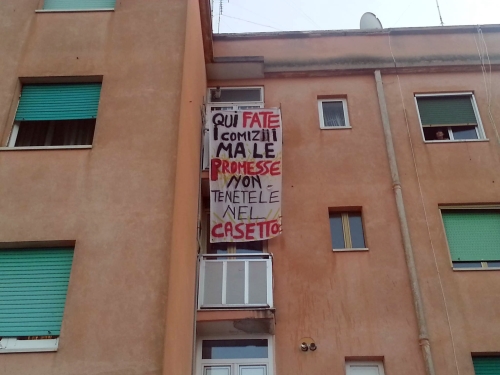 QUI FATE
I COMIZII
MA LE
PROMESSE
NON
TENETELE
NEL
CASETTO